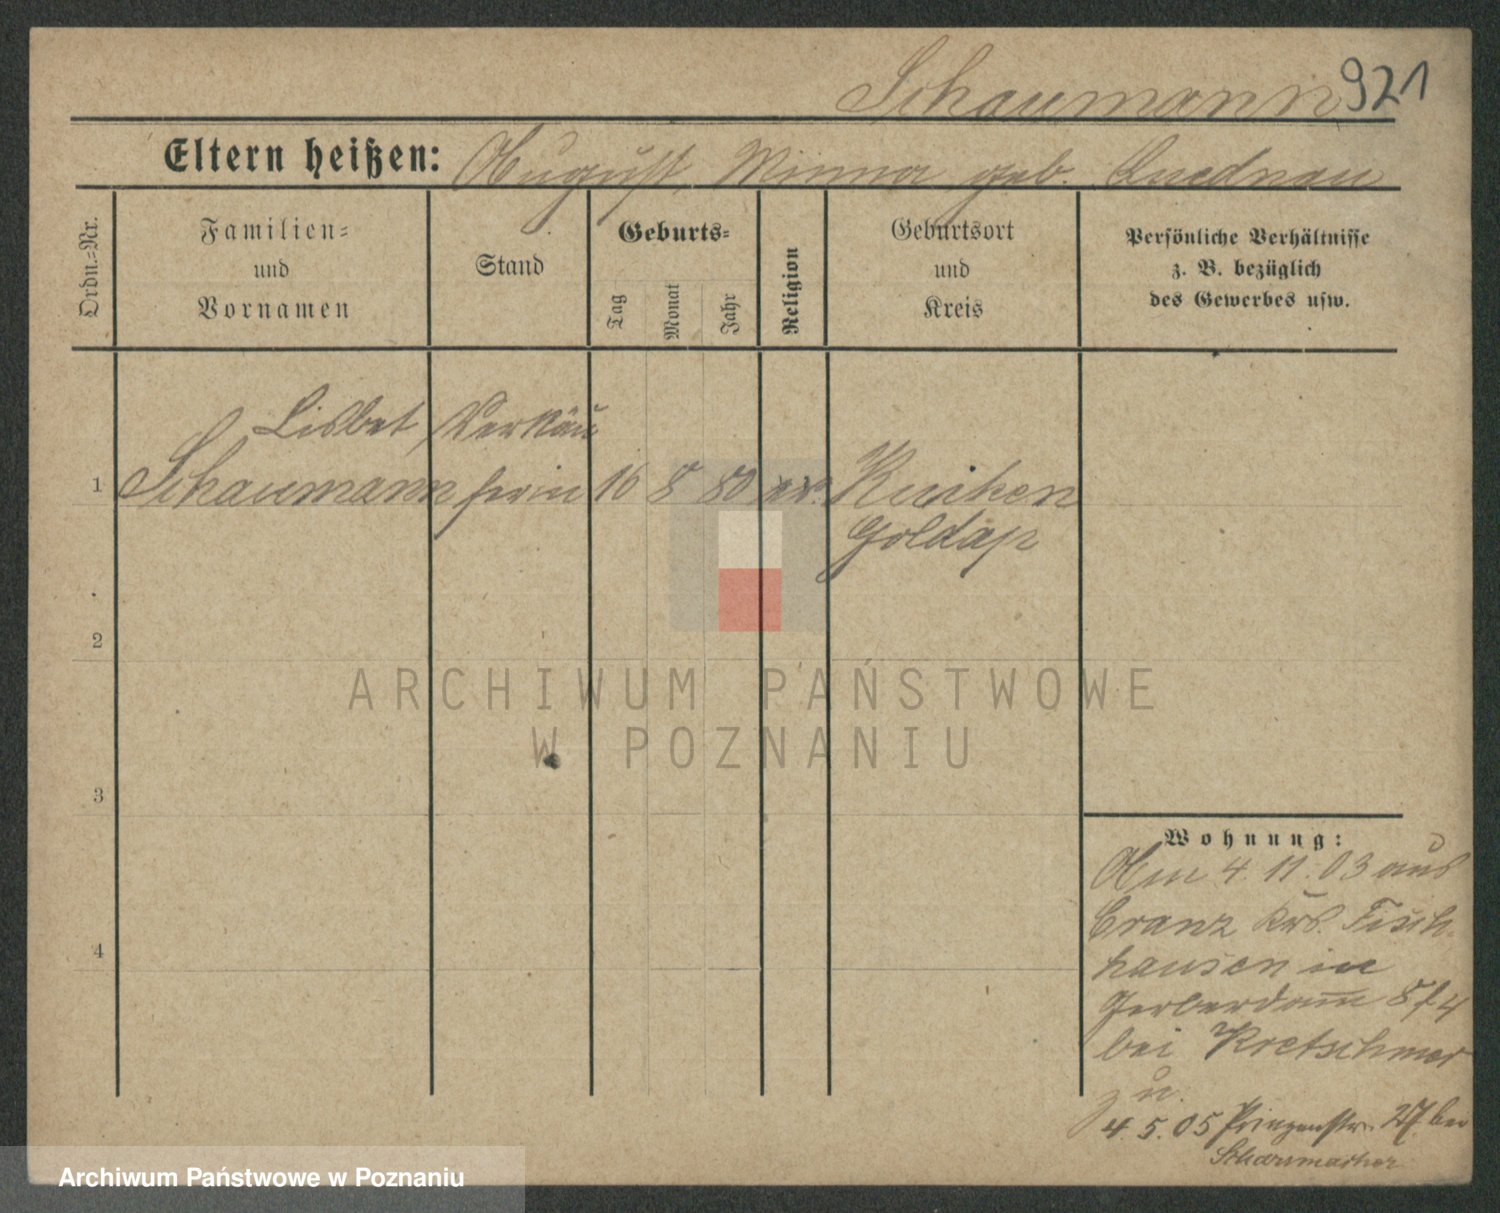 Schaumann 921
Eltern heißen: August, Minna geb. Quednau
Ordn.=Nr.
Familien=
und
Vornamen
Stand
Geburts=
Tag
Monat
Jahr
Religion
Geburtsort
und
Kreis
Persönliche Verhältnisse
z. B. bezüglich
des Gewerbes usw.
Lisbet Verkäu
1 Schaumann ferin 16 8 80 ev.
Goldap
2
ARCHIWUM PAŃSTWOWE
W POZNANIU
3
4
Wohnung:
Am 4. 11. 03 aus
Cranz Krs. Fisch-
hausen in
Gerberdamm
bei Kretschmer
zu.
4. 5. 05 Prinzenstr. 27 bei
Archiwum Państwowe w Poznaniu